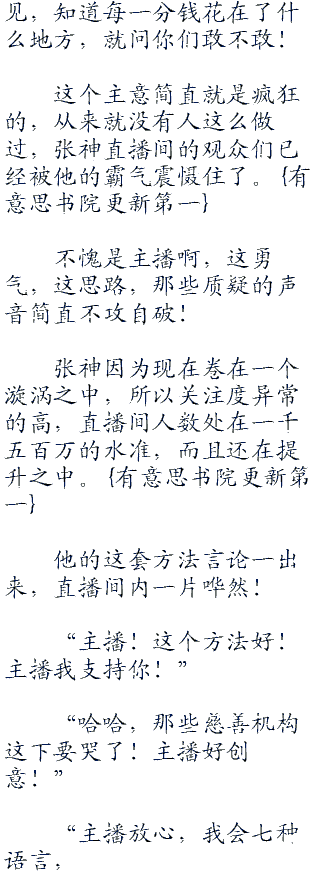 见，知道每一分钱花在了什
么地方，就问你们敢不敢！
这个主意简直就是疯狂
的，从来就没有人这么做
过，张神直播间的观众们已
经被他的霸气震慑住了。{有
意思书院更新第一}
不愧是主播啊，这勇
气，这思路，那些质疑的声
音简直不攻自破！
张神因为现在卷在一个
漩涡之中，所以关注度异常
的高，直播间人数处在一千
五百万的水准，而且还在提
升之中。{有意思书院更新第
一}
他的这套方法言论一出
来，直播间内一片哗然！
“主播！这个方法好！
主播我支持你！”
“哈哈，那些慈善机构
这下要哭了！主播好创
意！”
“主播放心，我会七种
语言，